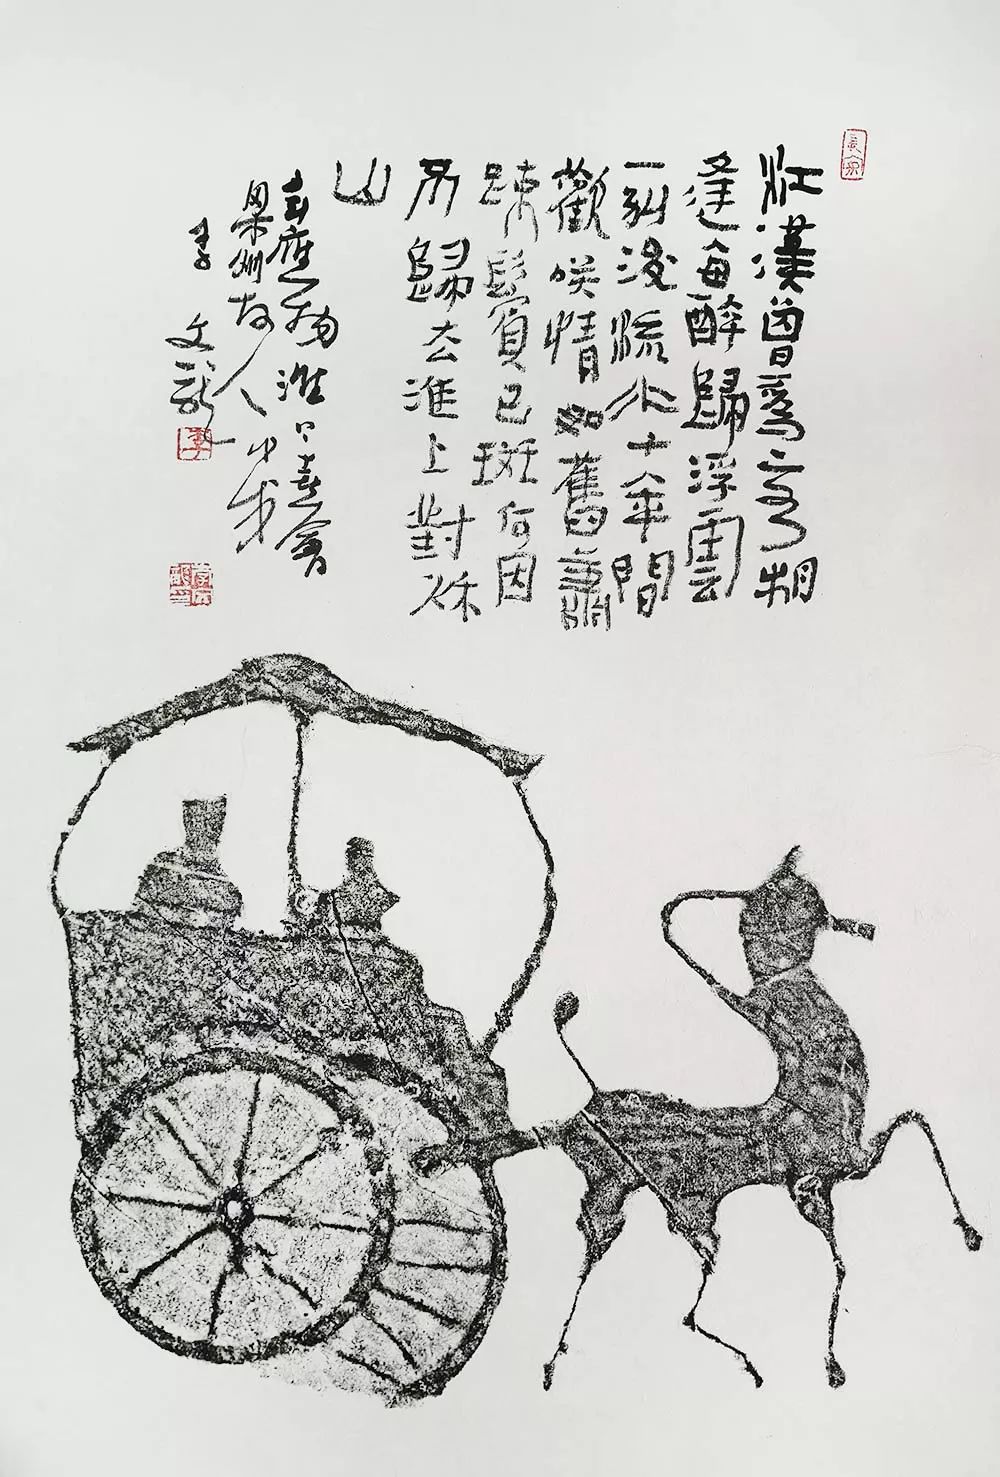 江漢曾爲客相
逢每醉歸浮雲
一別後流水十年間
歡咲情如舊蕭
疎鬢已斑何因
不歸去淮上對秌
山
韋應物淮上喜會
梁州故人
李文龍
李